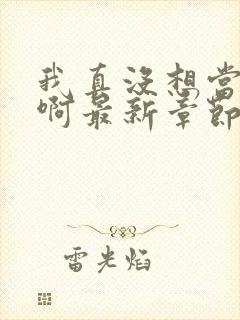 我真没想当
啊最新章节
雷光焰